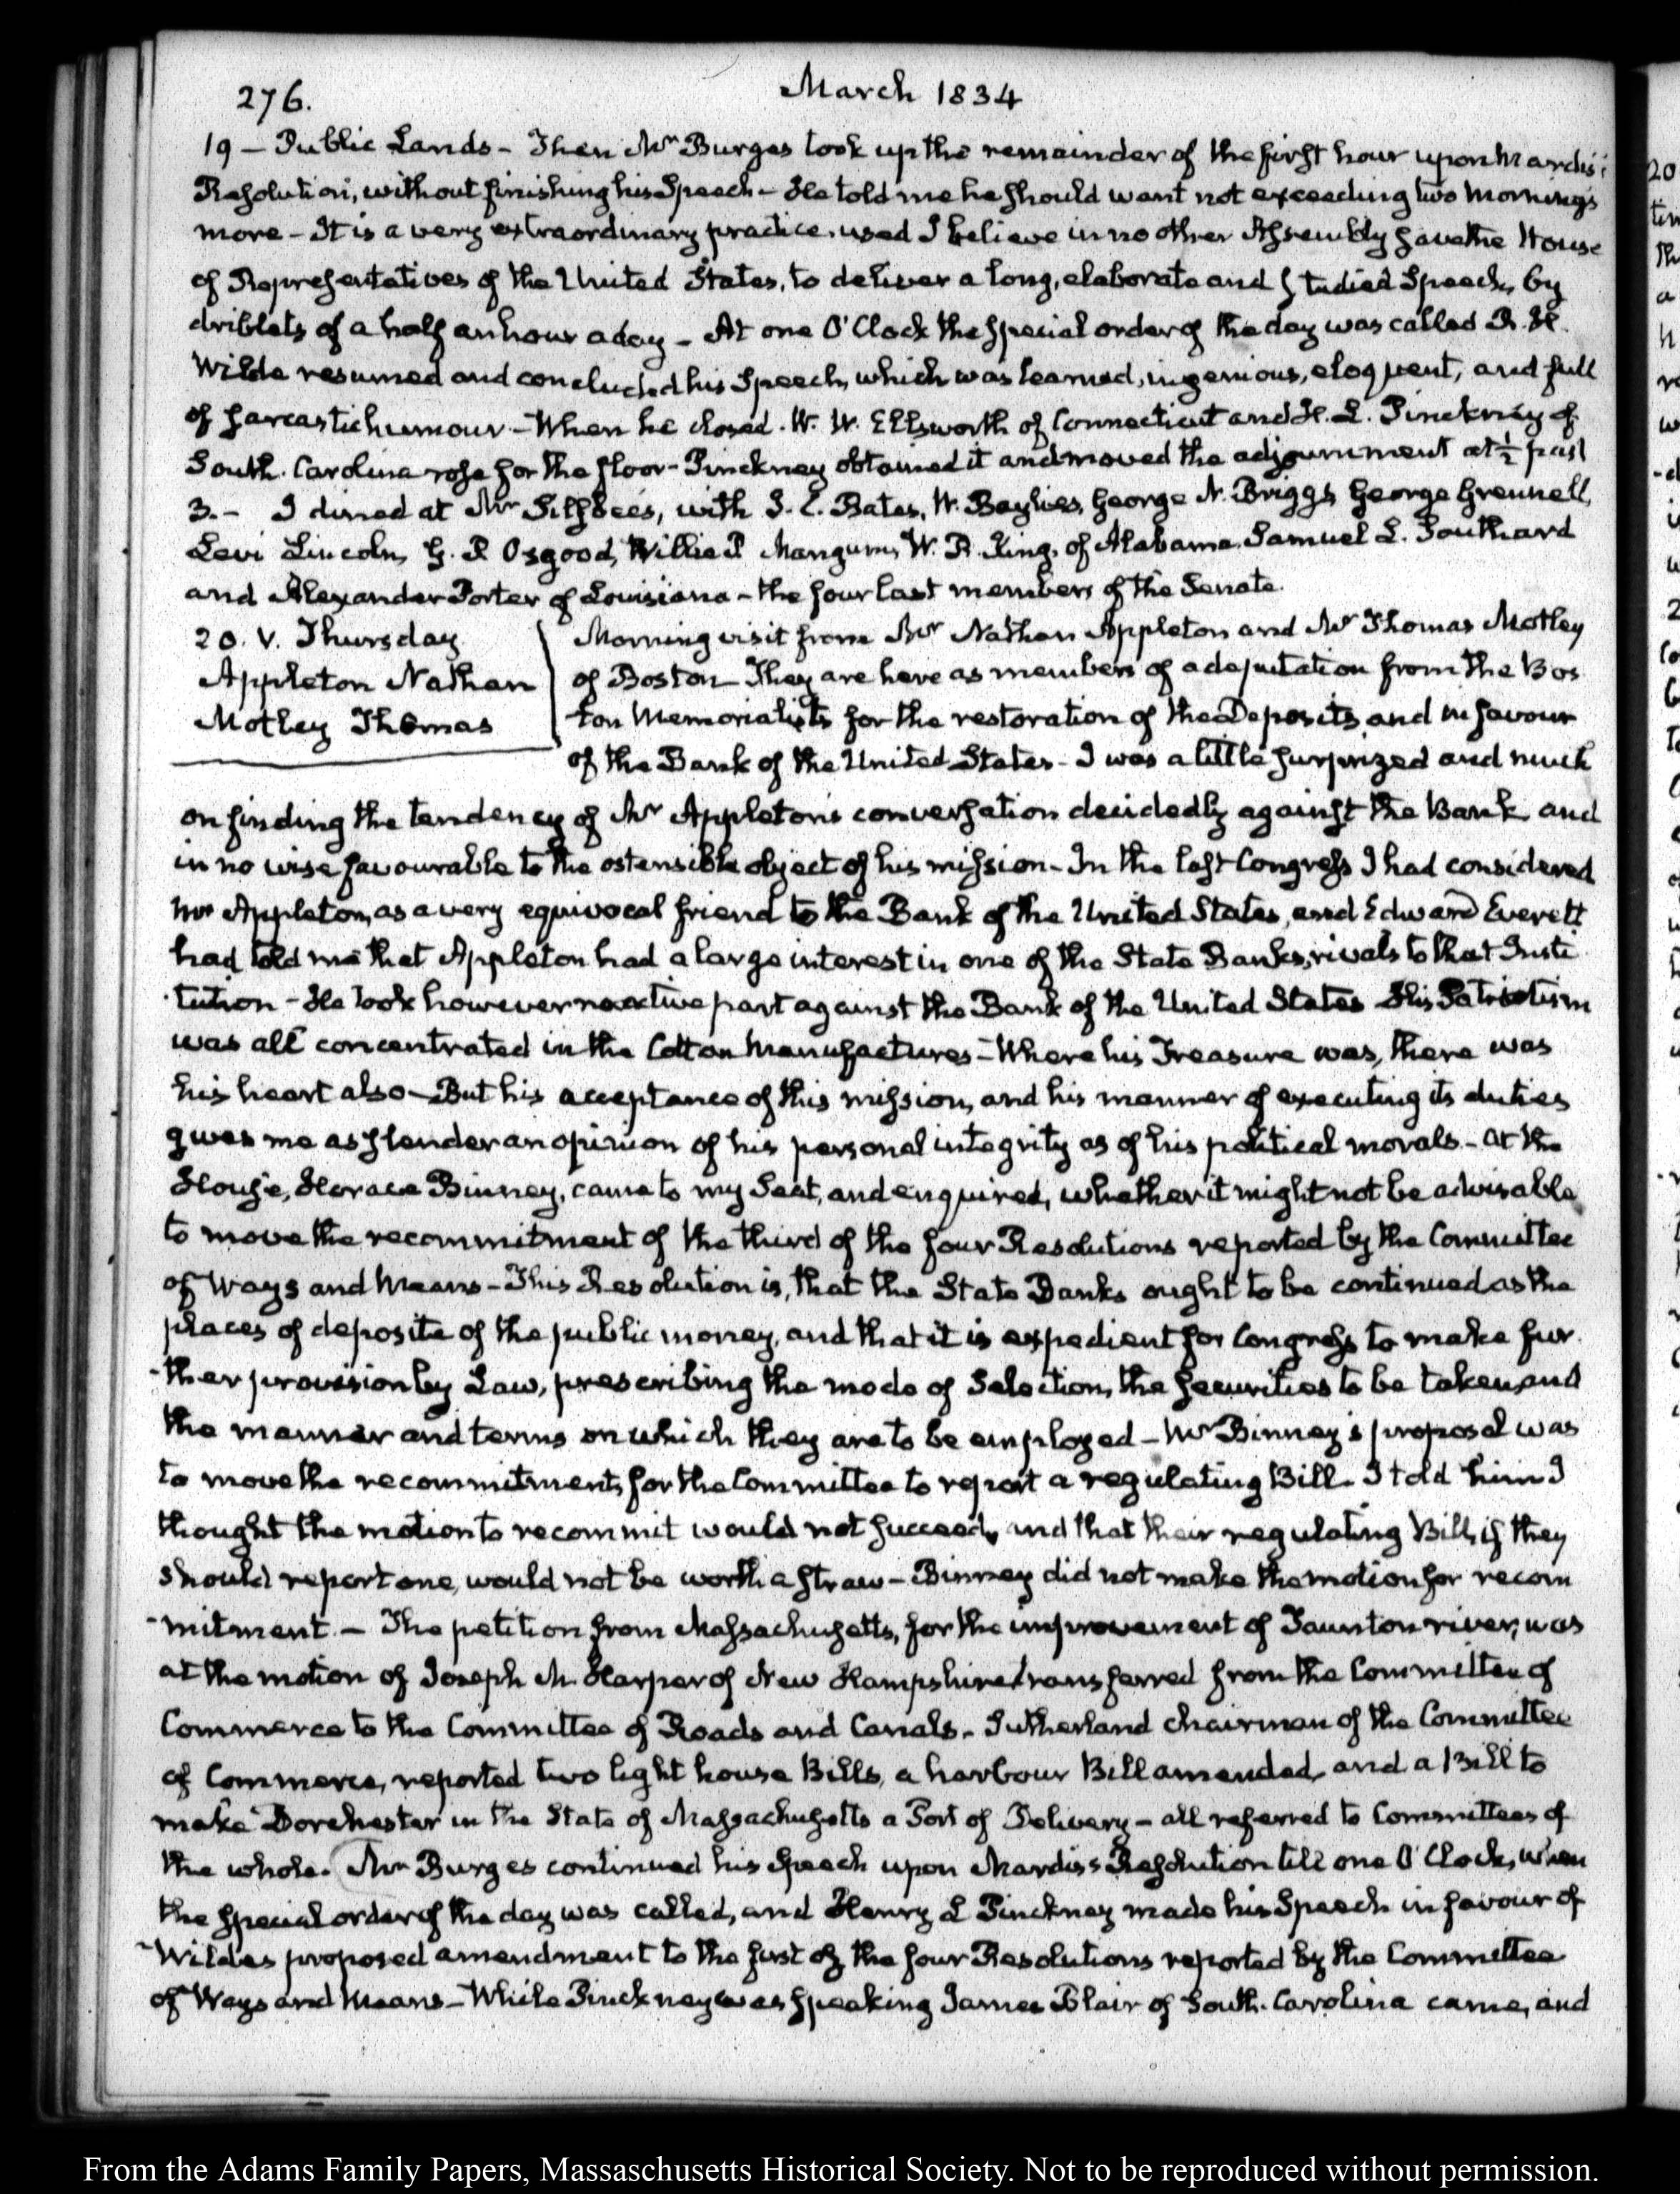 276.
March 1834
19 — Public Lands - Then Mr Burges took up the remainder of the first hour upon Mardis's
Resolution, without finishing his Speech - He told me he should want not exceeding two mornings
more - It is a very extraordinary practice, used I believe in no other Assembly save the House
of Representatives of the United States, to deliver a long, elaborate and studied Speech, by
driblets of a half an hour a day - At one O'Clock the special order of the day was called R. H.
Wilde resumed and concluded his Speech, which was learned, ingenious, eloquent, and full
of sarcastic humour - When he closed. W. W. Ellsworth of Connecticut and H. L. Pinckney of
South-Carolina rose for the floor - Pinckney obtained it and moved the adjournment at ½ past
3. - I dined at Mr Silsbee's, with I. C. Bates, W. Baylies, George N. Briggs, George Grennell,
Levi Lincoln, G. D. Osgood, Willie P. Mangum, W. R. King, of Alabama, Samuel L. Southard
and Alexander Porter of Louisiana - the four last members of the Senate.
20. V. Thursday
Appleton Nathan
Motley Thomas
Morning visit from Mr Nathan Appleton and Mr Thomas Motley
of Boston - They are here as members of a deputation from the Bos
ton Memorialists for the restoration of the Deposits, and in favour
of the Bank of the United States - I was a little surprized and much
on finding the tendency of Mr Appleton's conversation decidedly against the Bank, and
in no wise favourable to the ostensible object of his mission - In the last Congress I had considered
Mr Appleton, as a very equivocal friend to the Bank of the United States, and Edward Everett
had told me that Appleton had a large interest in one of the State Banks, rivals to that Insti
-tution - He took however no active part against the Bank of the United States His Patriotism
was all concentrated in the Cotton Manufactures - Where his Treasure was, there was
his heart also - But his acceptance of this mission, and his manner of executing its duties
gives me as slender an opinion of his personal integrity as of his political morals - At the
House, Horace Binney, came to my Seat, and enquired, whether it might not be advisable
to move the recommitment of the third of the four Resolutions reported by the Committee
of Ways and Means - This Resolution is, that the State Banks ought to be continued as the
places of deposite of the public money, and that it is expedient for Congress to make fur
-ther provision by Law, prescribing the mode of Selection, the securities to be taken, and
the manner and terms on which they are to be employed - Mr Binney's proposal was
to move the recommitment, for the Committee to report a regulating Bill. I told him I
thought the motion to recommit would not succeed, and that their regulating Bill, if they
should report one, would not be worth a straw - Binney did not make the motion for recom
-mitment - The petition from Massachusetts, for the improvement of Taunton river, was
at the motion of Joseph M. Harper of New Hampshire transferred from the Committee of
Commerce to the Committee of Roads and Canals. Sutherland chairman of the Committee
of Commerce, reported two light house Bills, a harbour Bill amended, and a Bill to
make Dorchester in the State of Massachusetts a Port of Delivery - all referred to Committees of
the whole. Mr Burges continued his Speech upon Mardis's Resolution till one O'Clock, when
the special order of the day was called, and Henry L Pinckney made his Speech in favour of
Wildes proposed amendment to the first of the four Resolutions reported by the Committee
of Ways and Means - While Pinckney was speaking James Blair of South-Carolina came, and
From the Adams Family Papers, Massachusetts Historical Society. Not to be reproduced without permission.